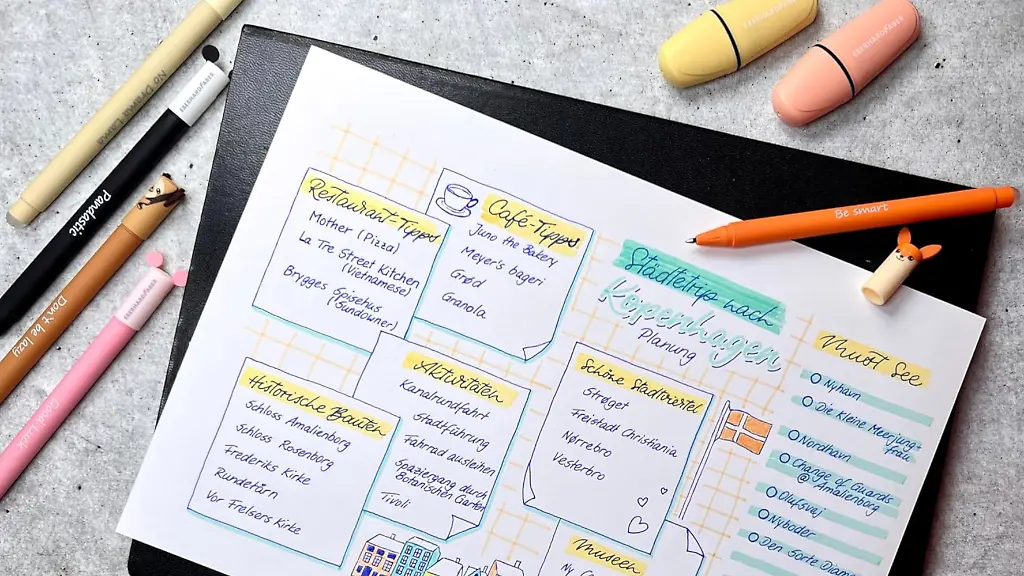 No Drama
EBERHARDFABER
Pandastic
Don't be lazy
EBERHARDFABER
EBERHARDFABER
EBERHARDFABER
Be smart
Restaurant-Tipps
Mother (Pizza)
La Tre Street Kitchen
(Vietnamese)
Brygges Spisehus
(Sundowner)
Café-Tipps
Juno the Bakery
Meyer's bageri
Grød
Granola
Städtetrip nach
Kopenhagen
Planung
Must See
Nyhavn
Die kleine Meerjung-
frau
Nordhavn
Change of Guards
@Amalienborg
Olufsvej
Nyboder
Den Sorte Diam
Historische Bauten
Schloss Amalienborg
Schloss Rosenborg
Frederiks Kirke
Rundetårn
Vor Frelsers Kirke
Aktivitäten
Kanalrundfahrt
Stadtführung
Fahrrad ausleihen
Spaziergang durch
Botanischen Garten
Tivoli
Schöne Stadtviertel
Strøget
Freistadt Christiania
Nørrebro
Vesterbro
Museen